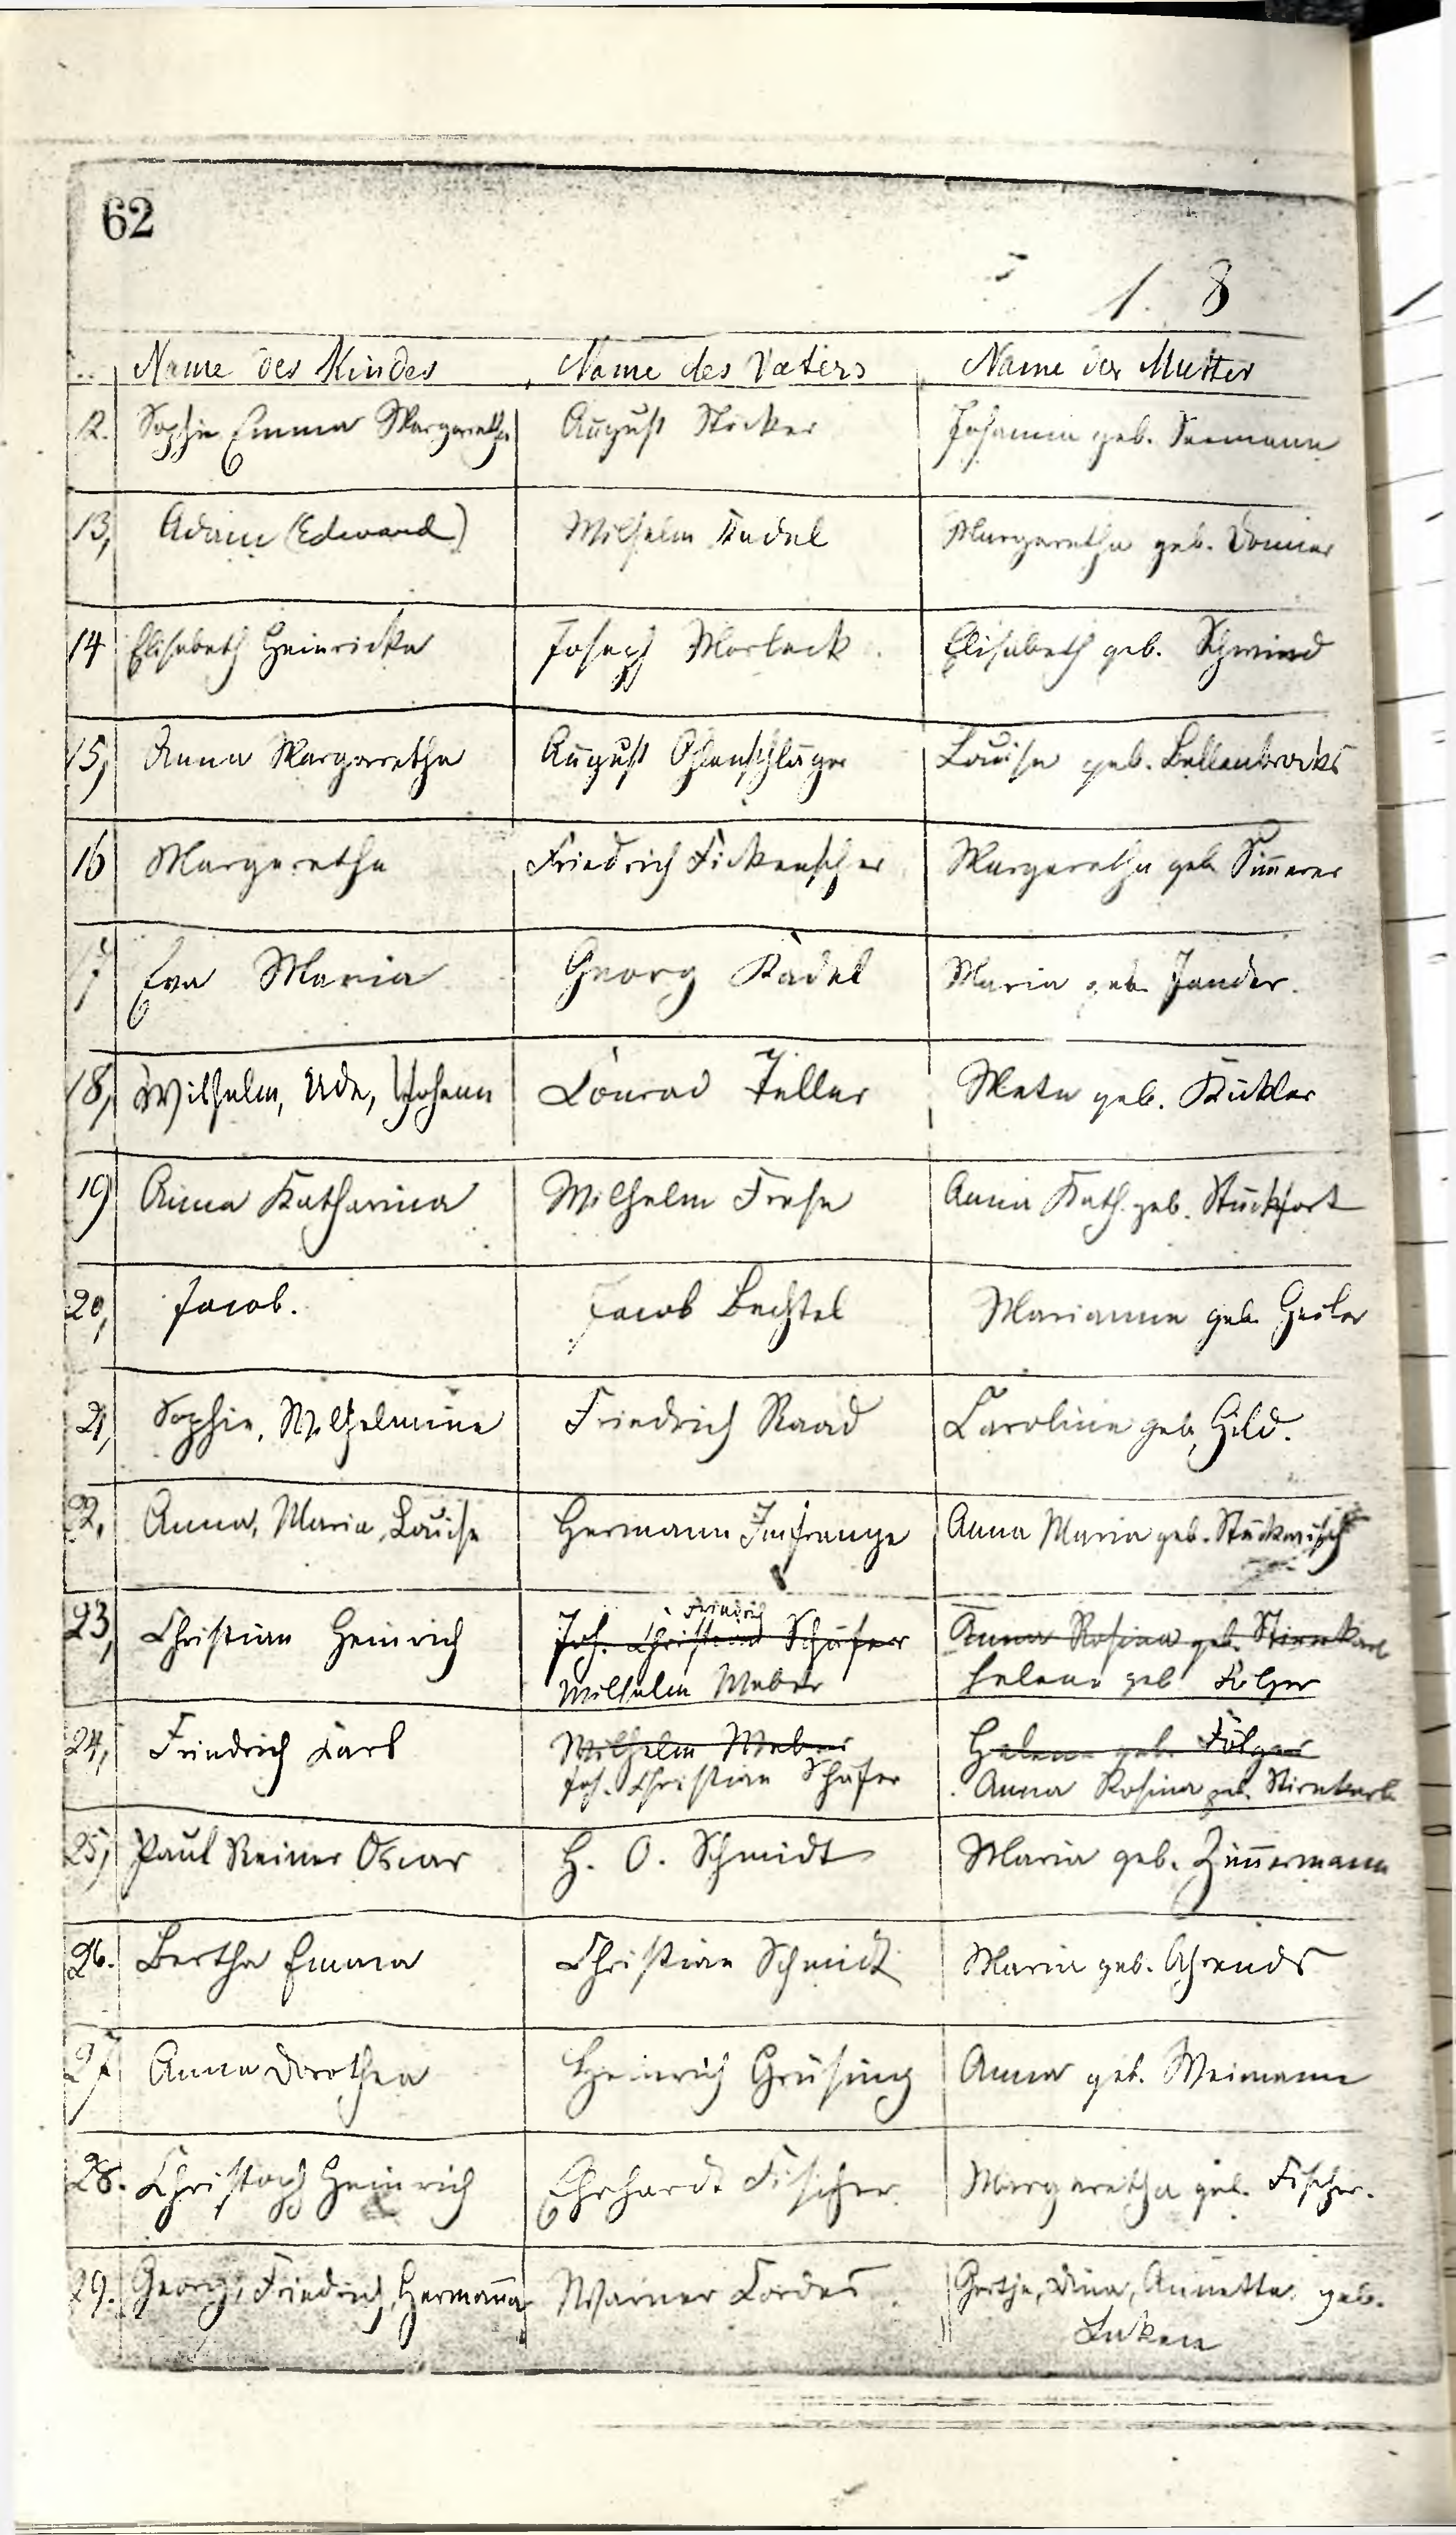 62
1. 8
Name des Kindes Name des Vaters Name der Mutter
12. Sophie Emma Margaretha August Stöcker Johanna geb. Seemann
13, Adam (Edward) Wilhelm Kadel Margaretha geb.
14 Elisabeth Heinricka Joseph Morlock Elisabeth geb. Schmind
15, Anna Margaretha August Ohlenschläger Louise geb. Bellenbrocks
16 Margaretha Friedrich Fickenscher Margaretha geb. Simerer
17 Eva Maria Georg Kadel Maria geb. Jander.
18, Wilhelm, Ude, Johann Conrad Zeller Meta geb. Kükler
19) Anna Katharina Wilhelm Frese Anna Kath. geb. Stückfort
20, Jacob. Jacob Bechtel Marianna geb. Geiler
21, Sophie, Wilhelmine Friedrich Raad Caroline geb. Hild.
22, Anna, Maria, Louise Hermann Imfrange Anna Maria geb. Stückwisch
Friedrich
23, Christian Heinrich Joh. Christian Schäfer Anna Rosina geb. Stirnkorb
Wilhelm Weber Helena geb. Folger
24, Friedrich Carl Wilhelm Weber Helena geb. Folger
Joh. Christian Schäfer Anna Rosina geb. Stirnkorb
25, Paul Reiner Oscar H. O. Schmidt Maria geb. Zimmermann
26. Bertha Emma Christian Schmidt Maria geb. Ahrends
27 Anna Dorothea Heinrich Grüsing Anna geb. Weimann
28. Christoph Heinrich Ehrhardt Fischer Margaretha geb. Fischer.
29. Georg, Friedrich, Hermann Warner Cordes Gertje, Dina, Annette geb.
Luken